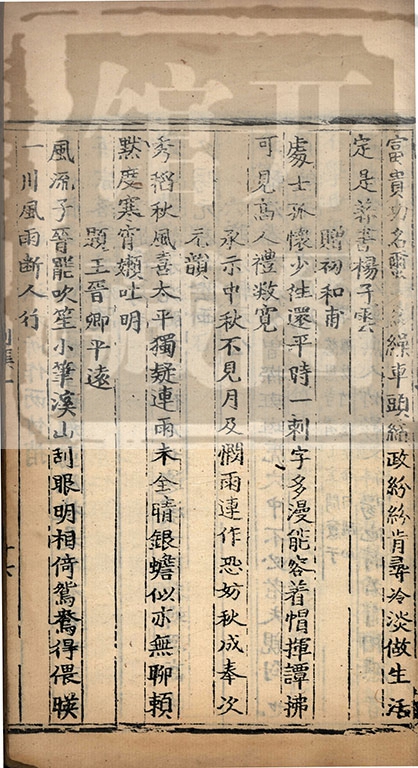 富貴功名
繰車頭緒政紛紛肯尋冷淡做生活
定是著書楊子雲
贈初和甫
處士孤懷少往還平時一刺字多漫能容着帽揮譚拂
可見高人禮數寬
承示中秋不見月及憫雨連作恐妨秋成奉次
元韻
秀稻秋風喜太平獨疑連雨未全晴銀蟾似亦無聊賴
默度寒宵嬾吐明
題王晉卿平遠
風流子晉罷吹笙小筆溪山刮眼明相倚鴛鴦得偎暎
一川風雨斷人行